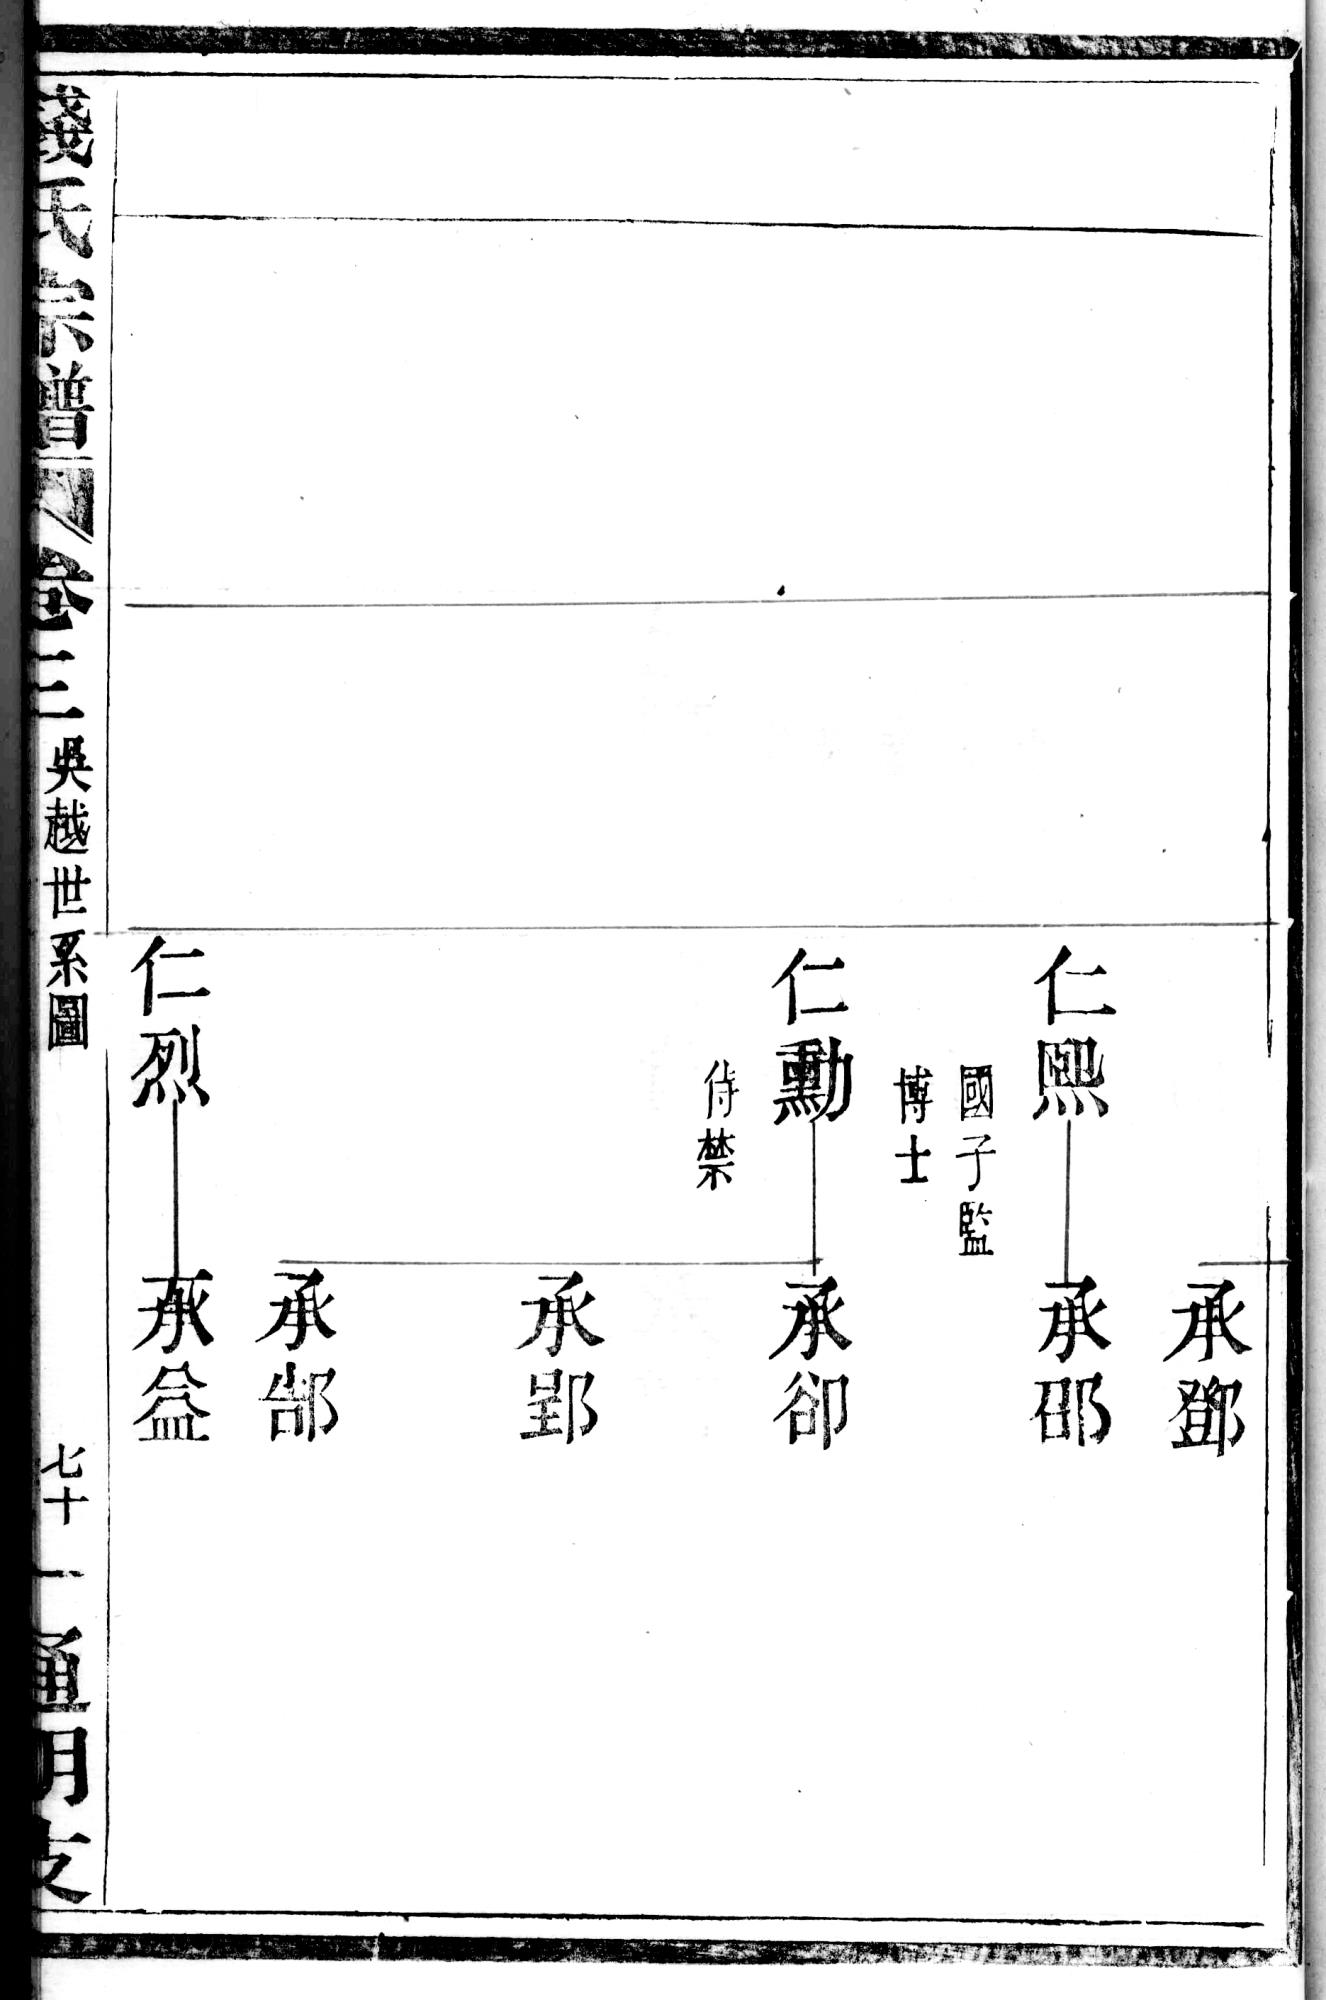 承鄧
仁熙
國子監
博士
承邵
仁勳
侍禁
承卻
承郢
承郜
仁烈
承益
錢氏宗譜
卷三
吳越世系圖
七十一
通明支